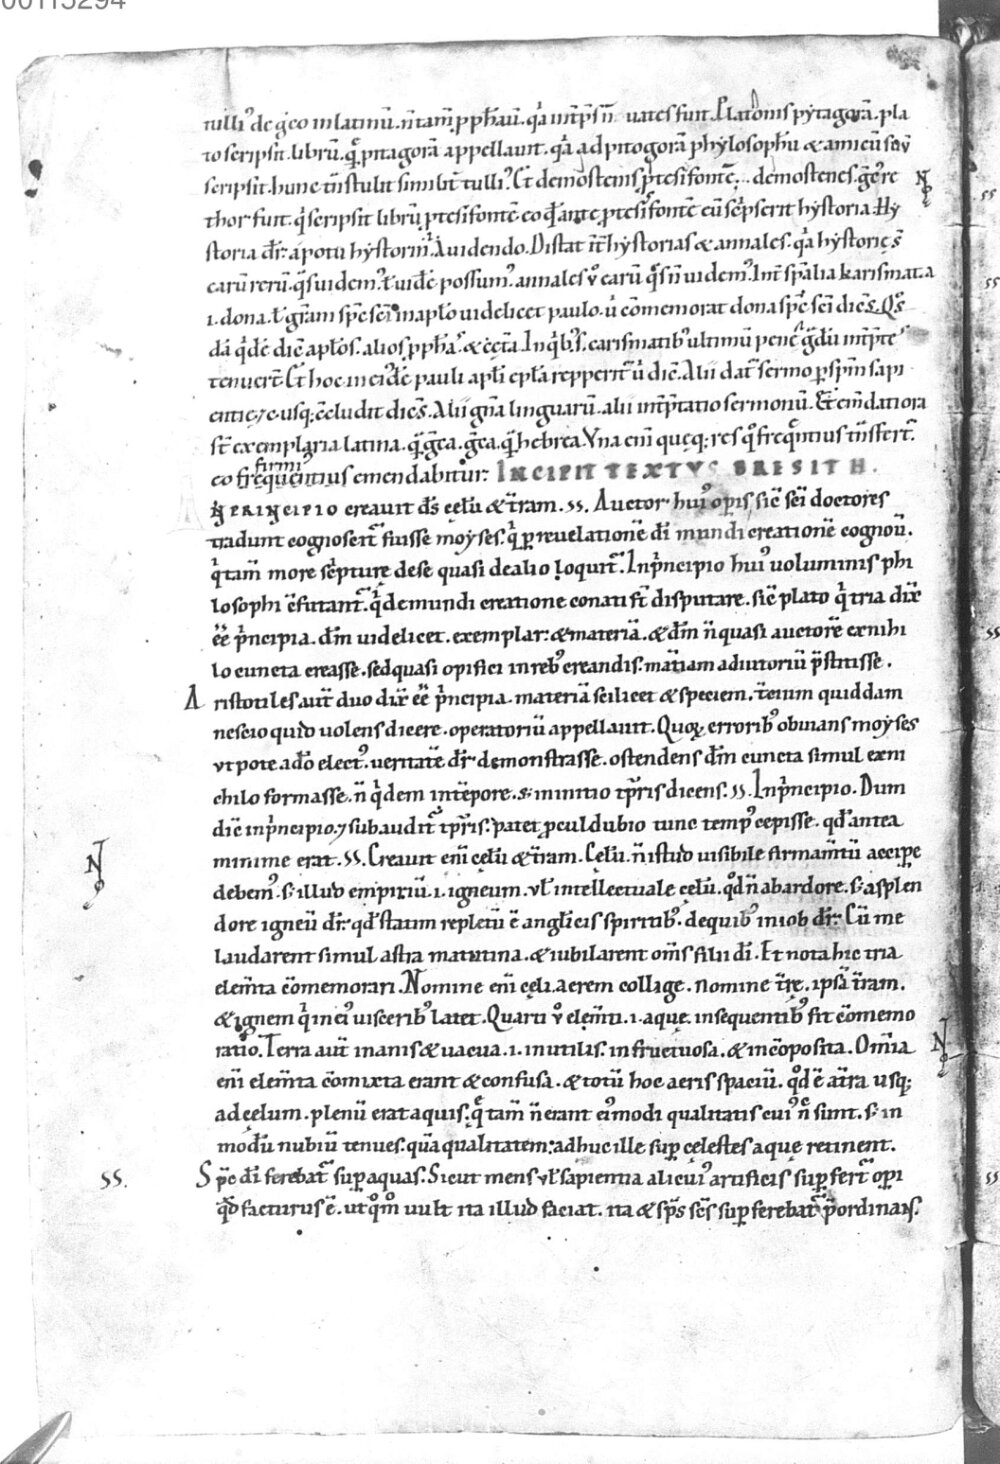 tulli᾽ de g̃co in latinū. ñ tam̃ ꝓph̃auit. q̃a int̃p̃s ñ uates fuit. Platonis pytagorā. pla
to scripsit librū. q̃ pitagorā appellauit. q̃a ad pitogorā phylosophū & amicū suū
scripsit. hunc tñstulit similit̃ tulli᾽. Et demostenis
thor fuit. q̃ scripsit librū hystoria. Hy
storia dr̃. apotu hystorin᾽. A uidendo. Distat int̃ hystorias & annales. q̃a hystorie s̃
earū rerū. q̃s uidem᾽. ł uidẽ possum᾽. annales u᾽ earū q̃s ñ uidem᾽. Int̃ sp̃alia karismata
.i. dona. ł gr̃am sp̃c sc̃i in ap̃lo uidelicet paulo. u᾽ cõmemorat dona sp̃c sc̃i diẽs. Q᾽s
dã q̃dẽ dic̃ ap̃los. alios ꝓph̃as. & cẽta. In q̃b᾽ s̃. carismatib᾽ ultimū penẽ g̃dū int̃p̃te᾽
tenuer̃t. Et hoc in ei᾽dẽ pauli apłi ep̃la repperit᾽ u᾽ dic̃. Alii dat᾽ sermo p sp̃m sapi
entię ⁊ c. usq; c̃cludit diẽs. Alii gña linguarū. alii int̃p̃tatio sermonū. Et em̃datiora
st̃ exemplaria latina. q̃ g̃ca. g̃ca. q̃ hebrea. Vna enī queq; res q̃ frequẽtius tñsfert᾽.
firmi᾽
eo frequentius emendabitur: INCIPIT TEXTVS BRESITH.
IN PRINCIPIO creauit ds̃ cęlū & t̃ram. SS. Auctor hui᾽ opis sic̃ sc̃i doctores
tradunt cognoscit᾽ fuisse moyses. q̃ p reuelationẽ di᾽ mundi creationẽ cognoũ.
q̃ tam̃ more sc̃pturę de se quasi de alio loquit᾽. In p̃ncipio hui᾽ uoluminis phi
losophi c̃futant᾽. q̃ de mundi creatione conati st̃ disputare. sic̃ plato q̃ tria dix̃
ẽẽ p̃ncipia. dm̃ uidelicet. exemplar: & materiã. & dm̃ ñ quasi auctorẽ ex nihi
lo cuncta creasse. sed quasi opifici in reb᾽ creandis. mat̃iam adiutoriū p̃stitisse.
Aristotiles aut̃ duo dix̃ ẽẽ p̃ncipia. materiã scilicet & speciem. t̃cium quiddam
nescio quid uolens dicere. operatoriū appellauit. Quoꝝ errorib᾽ obuians moyses
vt pote a do᾽ elect᾽. ueritatẽ dr̃ demonstrasse. ostendens dm̃ cuncta simul ex ni
chilo formasse. ñ q̃dem in tẽpore. s; in initio tp̃ris dicens. SS. In p̃ncipio. Dum
dic̃ in p̃ncipio. ⁊ subaudit᾽ tp̃ris. patet ꝓculdubio tunc temp᾽ cepisse. qd᾽ antea
minime erat. SS. Creauit enī cęlū & t̃ram. Cęlū. ñ istud uisibile firmam̃tū accipe
debem᾽. s; illud empiriū. i. igneum. vł intellectuale cęlū. qd᾽ ñ ab ardore. s; a splen
dore igneū dr̃. qd᾽ statim repletū ẽ anglicis spiritib᾽. de quib᾽ in iob dr̃. Cū me
laudarent simul astra matutina. & iubilarent om̃s filii di᾽. Et nota hic tria
elem̃ta cõmemorari. Nomine enī cęli aerem collige. nomine t̃rę. ipsã t̃ram.
& ignem q̃ in ei᾽ uiscerib᾽ latet. Quarti u᾽ elem̃ti. i. aque. in sequentib᾽ fit cõmemo
ratio. Terra aut̃ inanis & uacua. i. inutilis. infructuosa. & incõposita. Omĩa
enī elem̃ta cõmixta erant & confusa. & totū hoc aeris spaciū. qd᾽ ẽ a t̃ra usq;
ad cęlum. plenū erat aquis. q̃ tam̃ ñ erant ei᾽modi qualitatis cui᾽ nc̃ sunt. s; in
modū nubiū tenues. quã qualitatem: adhuc ille sup cęlestes aque retinent.
SS. Sp̃c di᾽ ferebat᾽ sup aquas. Sicut mens vł sapientia alicui᾽ artificis sup fert᾽ opi
qd᾽ facturus ẽ. ut q᾽om᾽ uult ita illud faciat. ita & sp̃s sc̃s sup ferebat᾽ p̃ordinans.